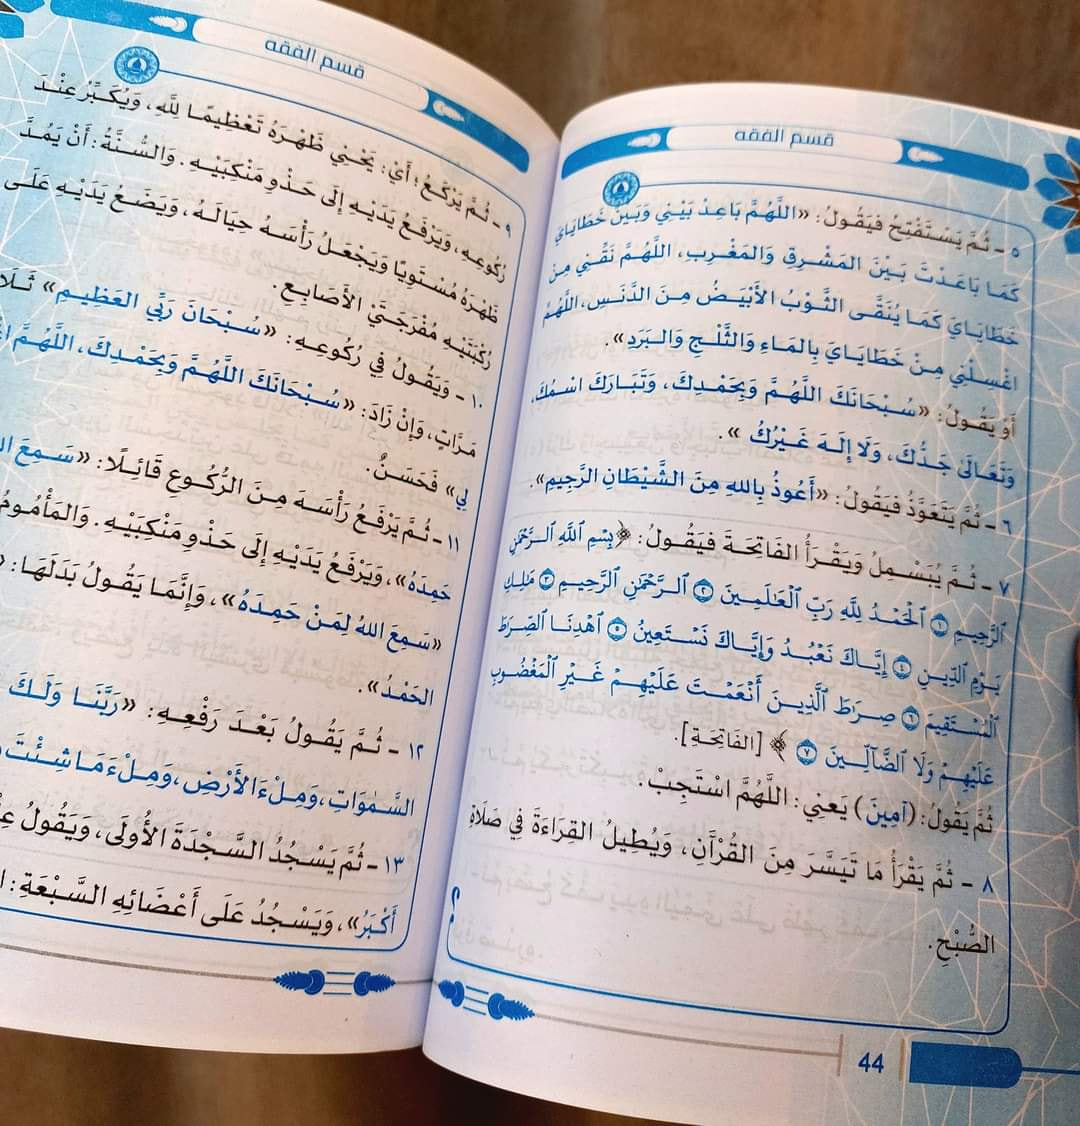 قسم الفقه
٥ - ثُمَّ يَسْتَفْتِحُ فَيَقُولُ: «اللَّهُمَّ بَاعِدْ بَيْنِي وَبَيْنَ خَطَايَايَ
كَمَا بَاعَدْتَ بَيْنَ المَشْرِقِ وَالمَغْرِبِ، اللَّهُمَّ نَقِّنِي مِنْ
خَطَايَايَ كَمَا يُنَقَّى الثَّوْبُ الأَبْيَضُ مِنَ الدَّنَسِ، اللَّهُمَّ
اغْسِلْنِي مِنْ خَطَايَايَ بِالمَاءِ وَالثَّلْجِ وَالبَرَدِ».
أَوْ يَقُولُ: «سُبْحَانَكَ اللَّهُمَّ وَبِحَمْدِكَ، وَتَبَارَكَ اسْمُكَ،
وَتَعَالَى جَدُّكَ، وَلَا إِلَهَ غَيْرُكَ».
٦ - ثُمَّ يَتَعَوَّذُ فَيَقُولُ: «أَعُوذُ بِاللهِ مِنَ الشَّيْطَانِ الرَّجِيمِ».
٧ - ثُمَّ يُبَسْمِلُ وَيَقْرَأُ الفَاتِحَةَ فَيَقُولُ: ﴿بِسْمِ ٱللَّهِ ٱلرَّحْمَٰنِ
ٱلرَّحِيمِ ١ ٱلْحَمْدُ لِلَّهِ رَبِّ ٱلْعَٰلَمِينَ ٢ ٱلرَّحْمَٰنِ ٱلرَّحِيمِ ٣ مَٰلِكِ
يَوْمِ ٱلدِّينِ ٤ إِيَّاكَ نَعْبُدُ وَإِيَّاكَ نَسْتَعِينُ ٥ ٱهْدِنَا ٱلصِّرَٰطَ
ٱلْمُسْتَقِيمَ ٦ صِرَٰطَ ٱلَّذِينَ أَنْعَمْتَ عَلَيْهِمْ غَيْرِ ٱلْمَغْضُوبِ
عَلَيْهِمْ وَلَا ٱلضَّآلِّينَ ٧﴾ [الفَاتِحَةِ].
ثُمَّ يَقُولُ: (آمِينَ) يَعْنِي: اللَّهُمَّ اسْتَجِبْ.
٨ - ثُمَّ يَقْرَأُ مَا تَيَسَّرَ مِنَ القُرْآنِ، وَيُطِيلُ القِرَاءَةَ فِي صَلَاةِ
الصُّبْحِ.
44
قسم الفقه
٩ - ثُمَّ يَرْكَعُ؛ أَيْ: يَحْنِي ظَهْرَهُ تَعْظِيمًا لِلَّهِ، وَيُكَبِّرُ عِنْدَ
رُكُوعِهِ، وَيَرْفَعُ يَدَيْهِ إِلَى حَذْوِ مَنْكِبَيْهِ. وَالسُّنَّةُ: أَنْ يَمُدَّ
ظَهْرَهُ مُسْتَوِيًا وَيَجْعَلُ رَأْسَهُ حِيَالَهُ، وَيَضَعُ يَدَيْهِ عَلَى
رُكْبَتَيْهِ مُفْرَجَتَيْ الأَصَابِعِ.
١٠ - وَيَقُولُ فِي رُكُوعِهِ: «سُبْحَانَ رَبِّيَ العَظِيمِ»
مَرَّاتٍ، وَإِنْ زَادَ: «سُبْحَانَكَ اللَّهُمَّ وَبِحَمْدِكَ، اللَّهُمَّ
لِي» فَحَسَنٌ.
١١ - ثُمَّ يَرْفَعُ رَأْسَهُ مِنَ الرُّكُوعِ قَائِلًا: «سَمِعَ
حَمِدَهُ»، وَيَرْفَعُ يَدَيْهِ إِلَى حَذْوِ مَنْكِبَيْهِ. وَالمَأْمُومُ
«سَمِعَ اللهُ لِمَنْ حَمِدَهُ»، وَإِنَّمَا يَقُولُ بَدَلَهَا:
الحَمْدُ».
١٢ - ثُمَّ يَقُولُ بَعْدَ رَفْعِهِ: «رَبَّنَا وَلَكَ
السَّمٰوَاتِ، وَمِلْءَ الأَرْضِ، وَمِلْءَ مَا شِئْتَ
١٣ - ثُمَّ يَسْجُدُ السَّجْدَةَ الأُولَى، وَيَقُولُ
أَكْبَرُ»، وَيَسْجُدُ عَلَى أَعْضَائِهِ السَّبْعَةِ: